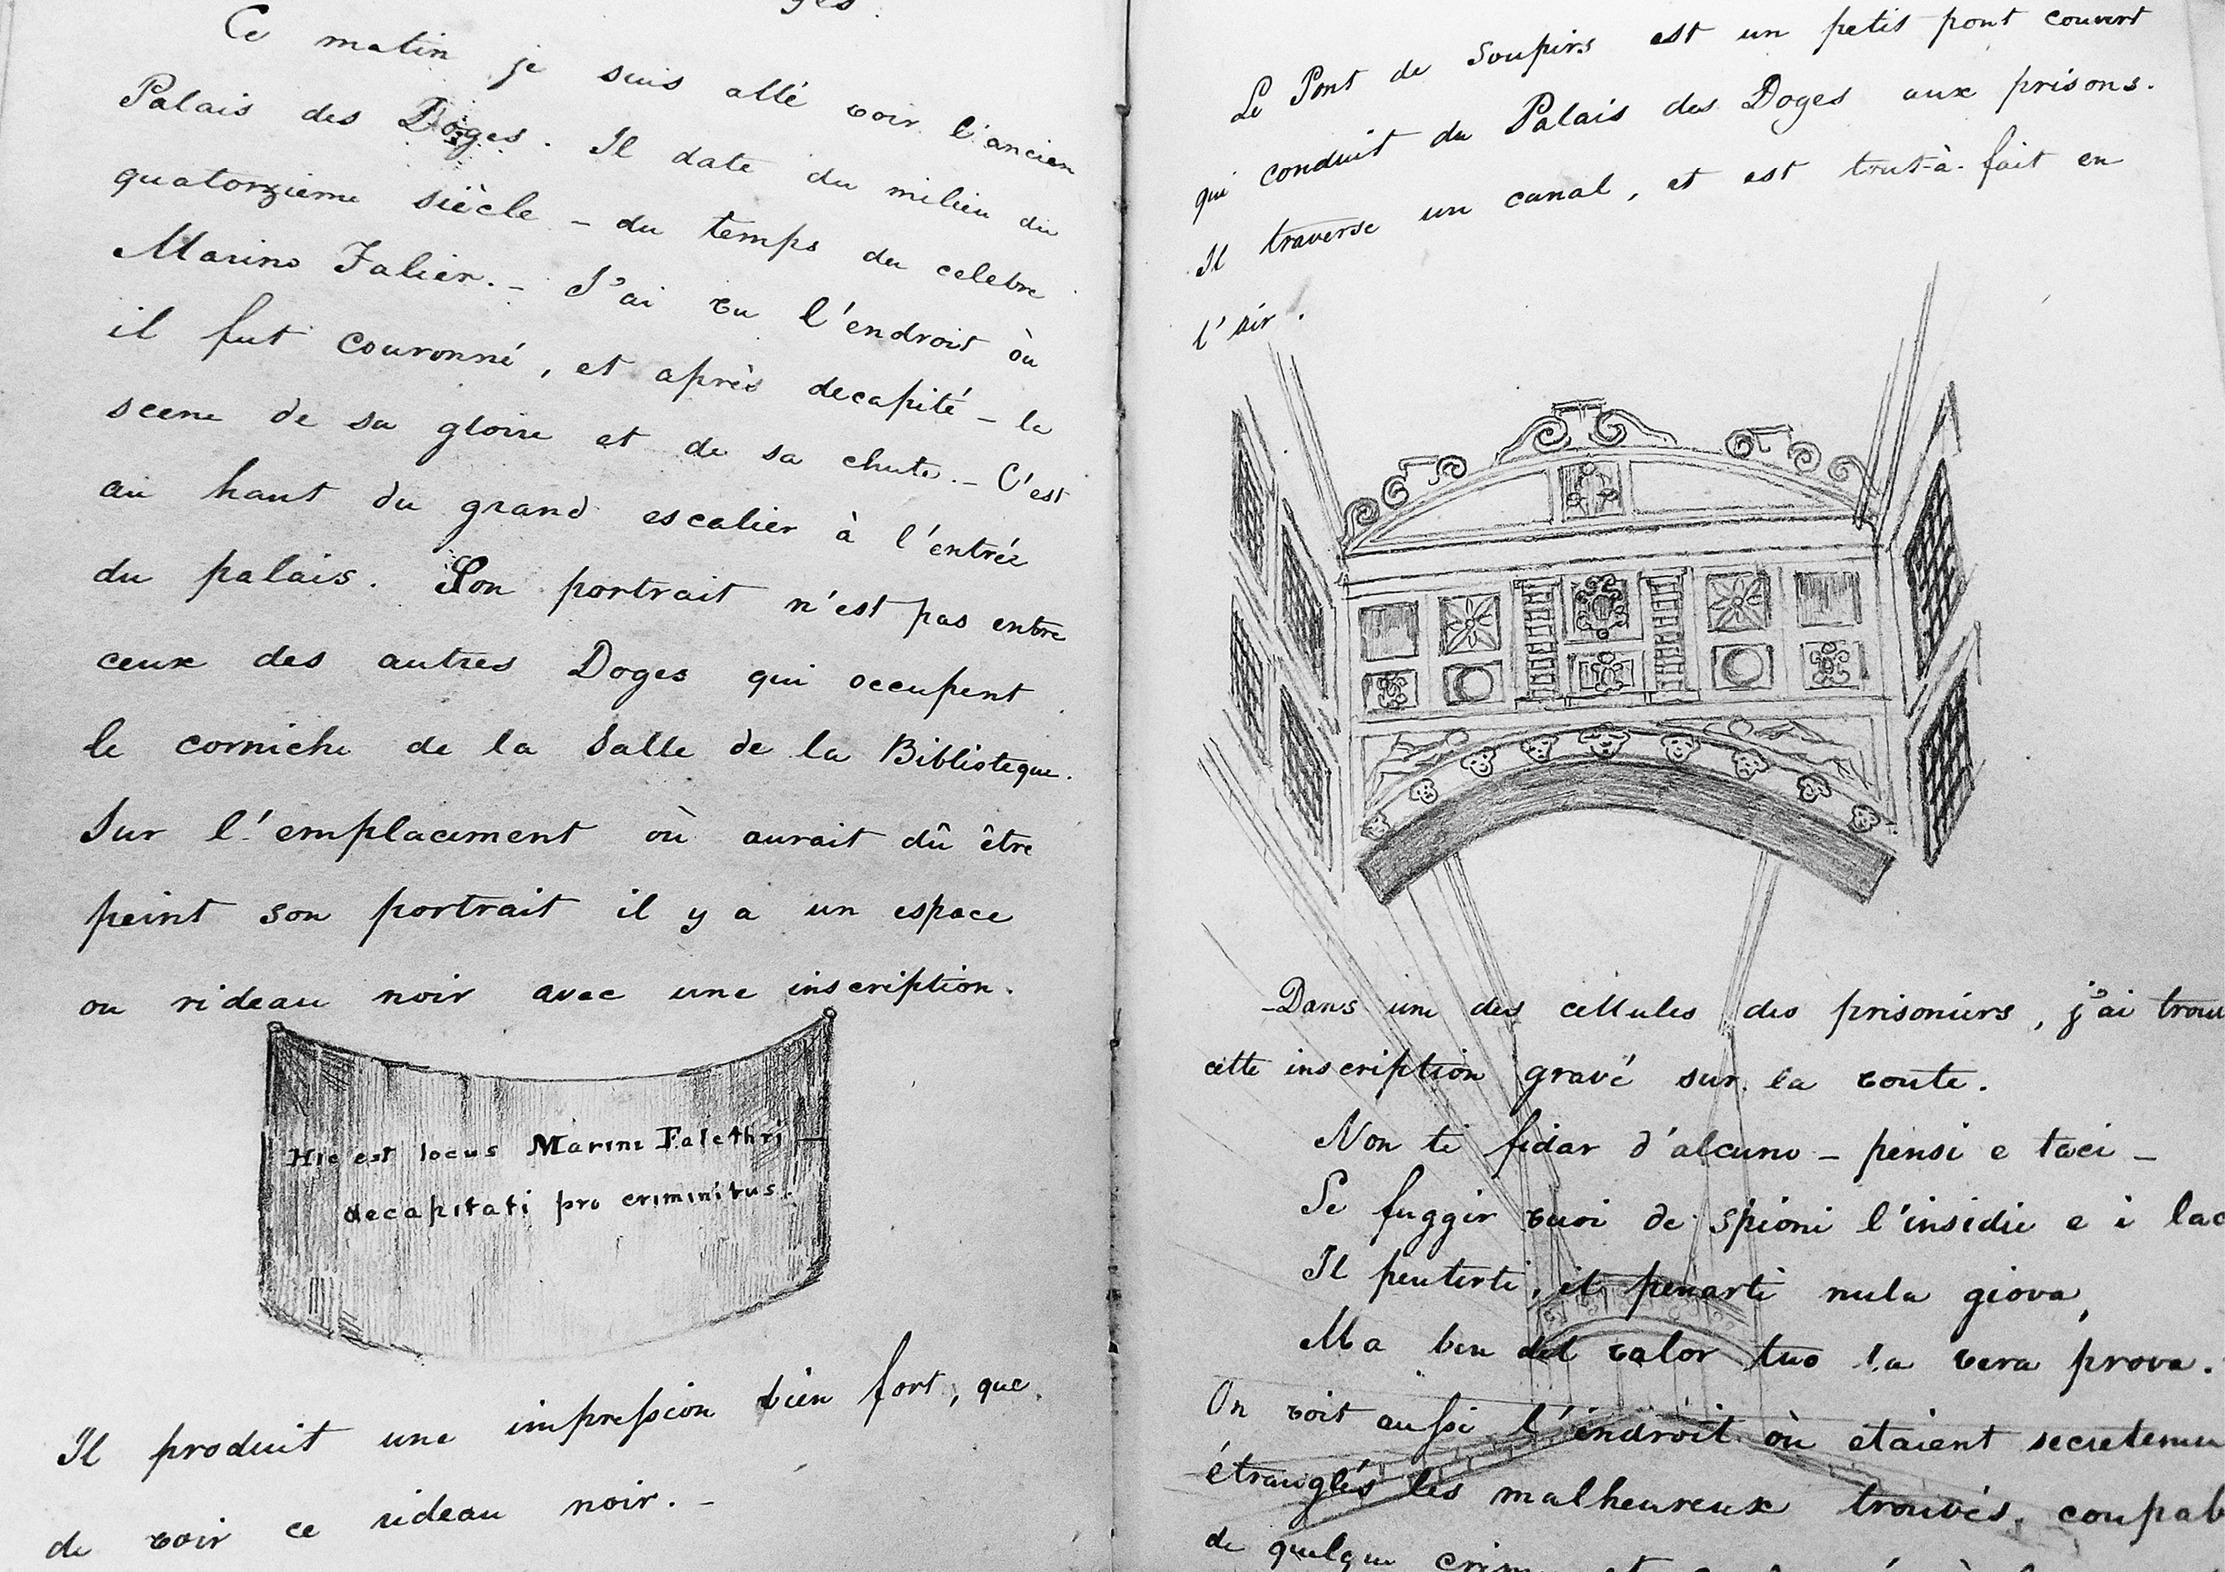 Ce matin je suis allé voir l'ancien
Palais des Doges. Il date du milieu du
quatorzieme siècle - du temps du celebre
Marino Falier. - J'ai vu l'endroit où
il fut couronné, et après decapité - la
scene de sa gloire et de sa chute. - C'est
au haut du grand escalier à l'entrée
du palais. Son portrait n'est pas entre
ceux des autres Doges qui occupent
le corniche de la Salle de la Biblioteque.
Sur l'emplacement où aurait dû être
peint son portrait il y a un espace
ou rideau noir avec une inscription.
Hic est locus Marini Falethri -
decapitati pro criminibus.
Il produit une impression bien fort, que
de voir ce rideau noir. -
Le Pont de Soupirs est un petit pont couvert
qui conduit du Palais des Doges aux prisons.
Il traverse un canal, et est tout-à-fait en
l'air.
- Dans une des cellules des prisoniers, j'ai trou
cette inscription gravé sur la voute.
Non ti fidar d'alcuno - pensi e taci -
Se fuggir vuoi de spioni l'insidie e i lac
Il pentirti, il penarti nula giova,
Ma ben del valor tuo la vera prova.
On voit aussi l'endroit où etaient secretem
étranglés les malheureux trouvés coupab
de quelque crime et